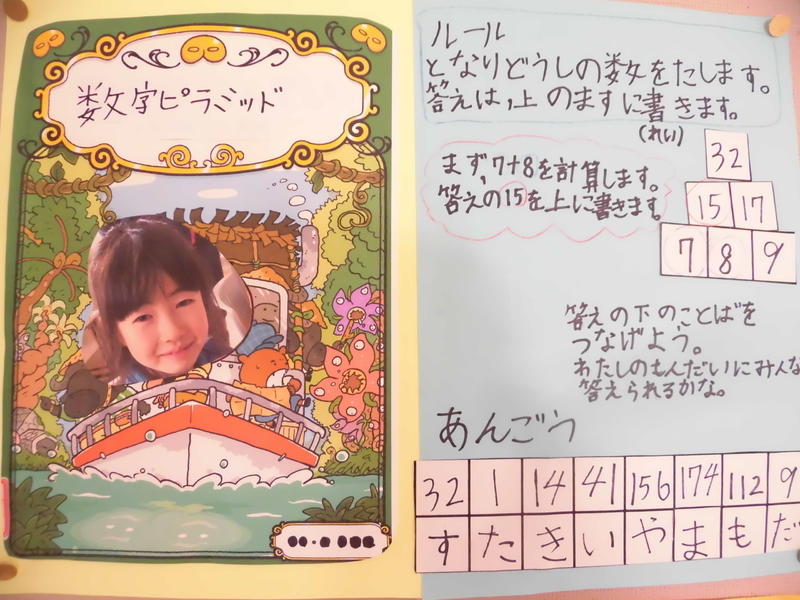 数字ピラミッド
ルール
となりどうしの数をたします。
答えは,上のますに書きます。
(れい)
まず,7+8を計算します。
答えの15を上に書きます。
32
15 17
7 8 9
答えの下のことばを
つなげよう。
わたしのもんだいにみんな
答えられるかな。
あんごう
32 1 14 41 156 174 112 9
す た き い や ま も だ